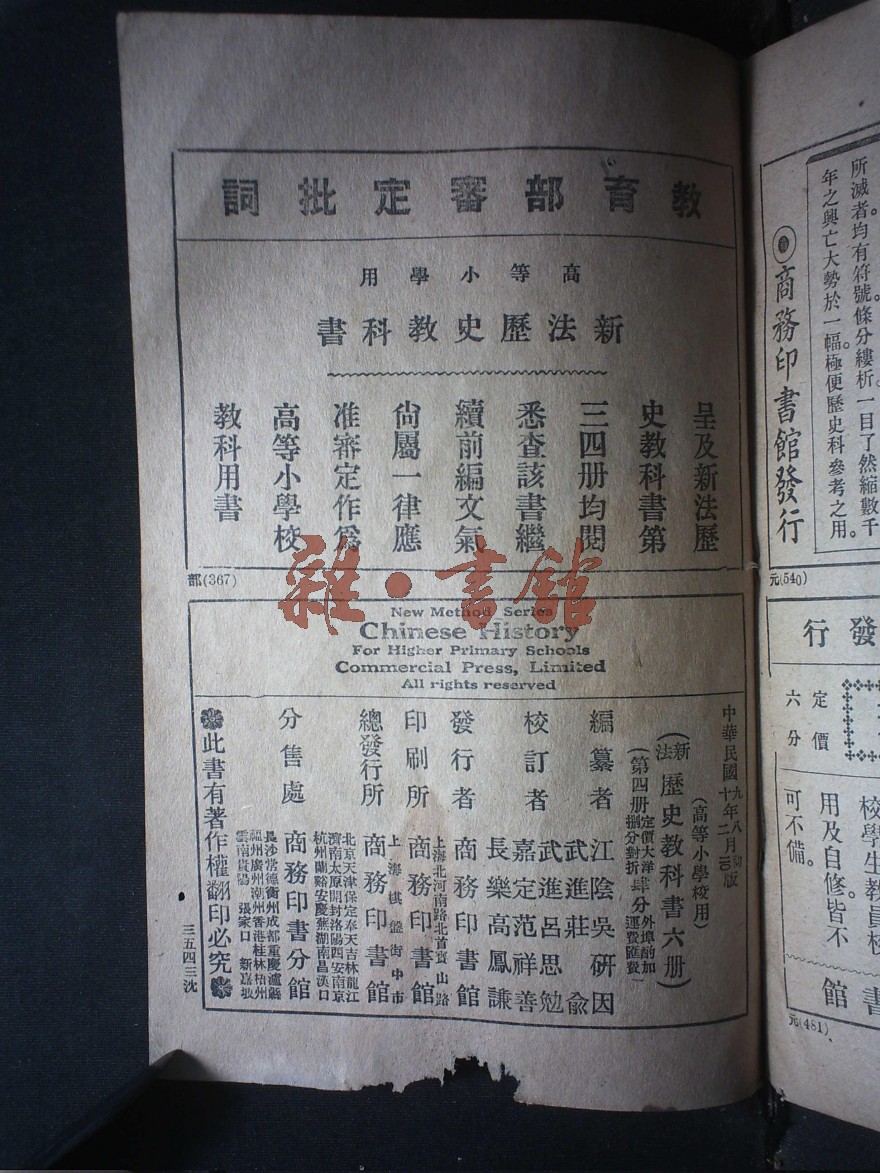 教育部審定批詞
高等小學用
新法歷史教科書
呈及新法歷
史教科書第
三四册均閱
悉查該書繼
續前編文氣
尙屬一律應
准審定作爲
高等小學校
教科用書
部(367)
雜·書館
New Method Series
Chinese History
For Higher Primary Schools
Commercial Press, Limited
All rights reserved
中華民國九年八月初版
十年二月10版
(高等小學校用)
(新法歷史教科書六册)
(第四册定價大洋肆分外埠酌加
捌分對折運費匯費)
編纂者 江陰吳研因
武進莊 俞
武進呂思勉
校訂者 嘉定范祥善
長樂高鳳謙
發行者 商務印書館
上海北河南路北首寶山路
印刷所 商務印書館
上海棋盤街中市
總發行所 商務印書館
北京天津保定奉天吉林龍江
濟南太原開封洛陽西安南京
杭州蘭谿安慶蕪湖南昌漢口
分售處 商務印書分館
長沙常德衡州成都重慶瀘縣
福州廣州潮州香港桂林梧州
雲南貴陽 張家口 新嘉坡
此書有著作權翻印必究
三五四三沈
所滅者均有符號。條分縷析。一目了然縮數千
年之興亡大勢於一幅。極便歷史科參考之用。
商務印書館發行
元(540)
發行
定價
六分
校學生教員校
用及自修皆不
可不備。
書館
元(481)